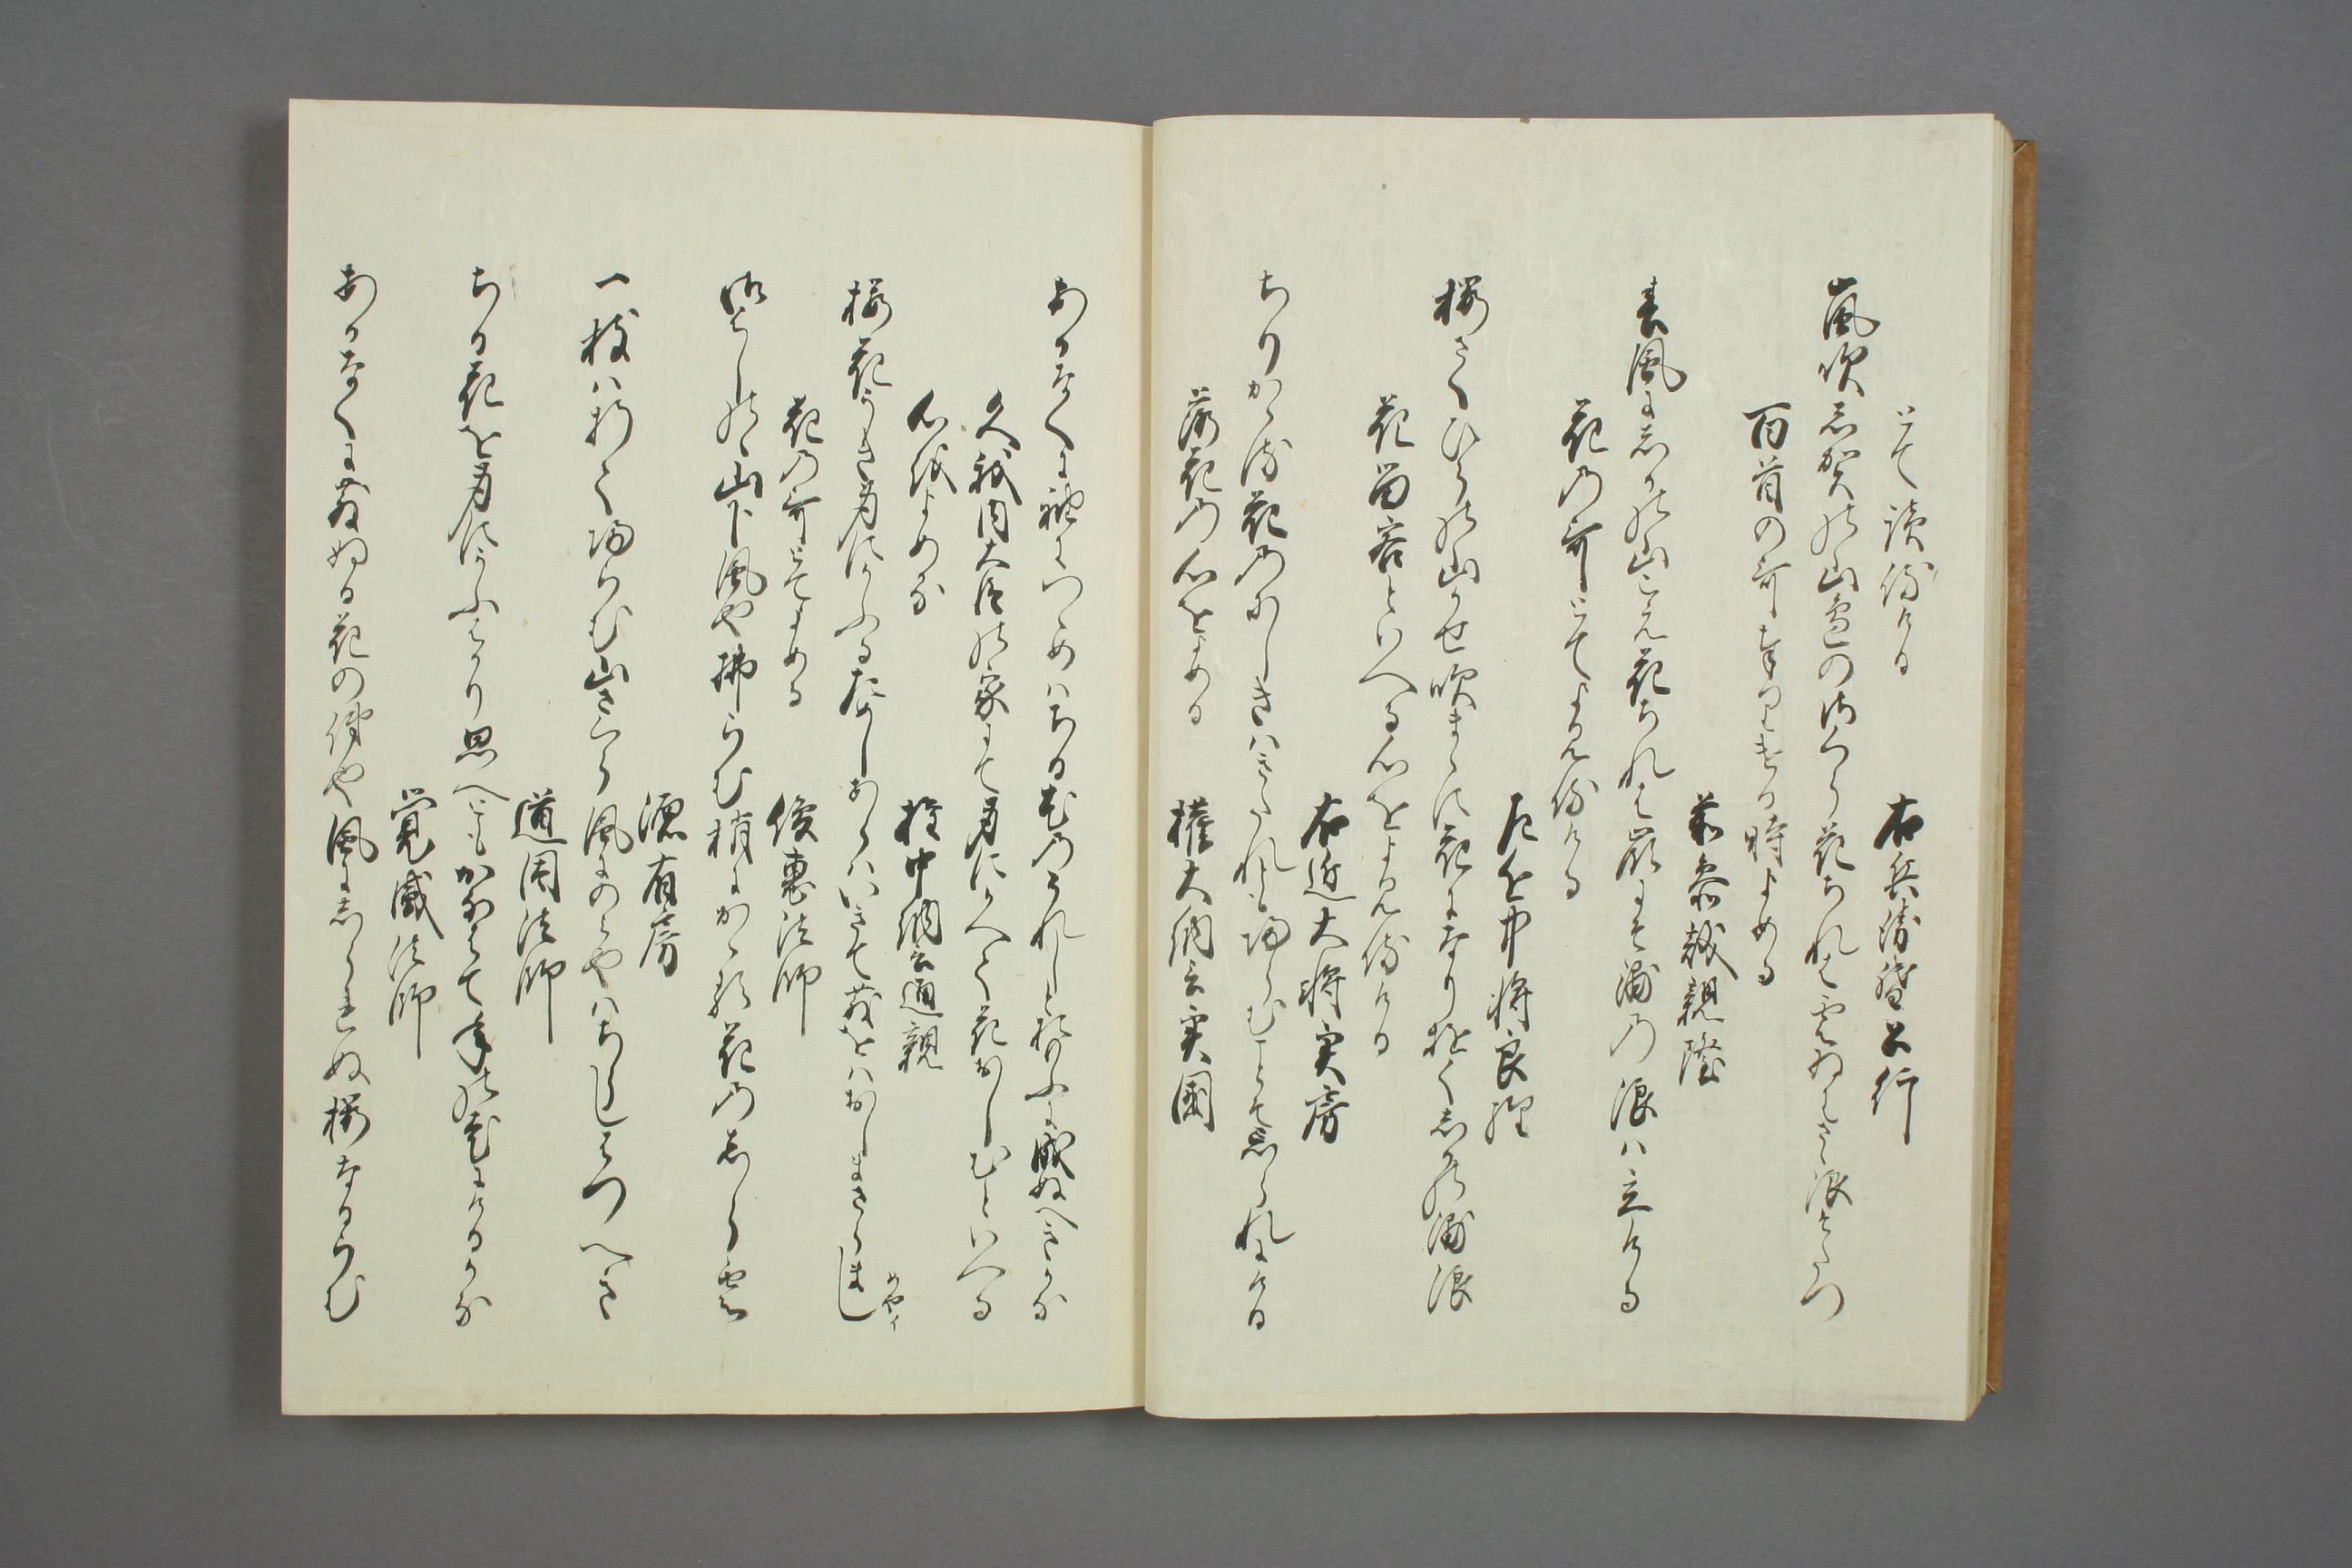 とて読侍ける
右兵衛督公行
嵐吹志賀の山邊のさくら花ちれは雲ゐにさゝ浪そたつ
百首の哥奉りける時よめる
前参議親隆
春風に志かの山こえ花ちれは峯にそ浦の浪は立ける
花の哥とてよみ侍ける
左近中将良経
桜さくひらの山かせ吹まゝに花になり行志かの浦浪
花留客といへる心をよみ侍ける
右近大将実房
ちりかゝる花のにしきはきたれとも帰らむことそ忘られにける
落花の心をよめる
権大納言実國
あかなくに袖につゝめはちる花のうれしと思ふに成ぬへきかな
久我内大臣の家にて身にかへて花おしむといへる
心をよめる
権中納言通親
桜花うき身にかふるためしあらはいきて散をはおしまさらまし
花の哥とてよめる
俊恵法師
みよしのゝ山下風や拂らむ梢にかへる花のしら雪
源有房
一枝は折て帰らむ山さくら風にのみやはちらしはつへき
道因法師
ちる花を身にかふはかり思へともかなはて年の老にけるかな
覚盛法師
あかなくに散ぬる花の俤や風にしられぬ桜なるらむ